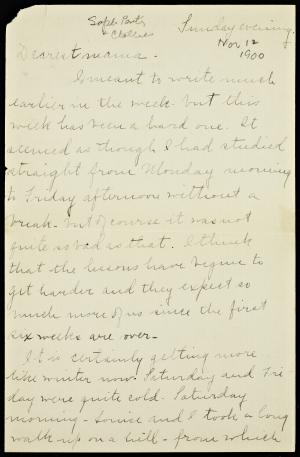 Soph Party
& Classes
Sunday evening.
Nov 12
1900
Dearest mama -
I meant to write much
earlier in the week - but this
week has been a hard one. It
seemed as though I had studied
straight from Monday morning
to Friday afternoon without a
break - but of course it was not
quite as bad as that. I think
that the lessons have begun to
get harder and they expect so
much more of us since the first
six weeks are over -
It is certainly getting more
like winter now. Saturday and Fri-
day were quite cold. Saturday
morning - Louise and I took a long
walk - up on a hill - from which